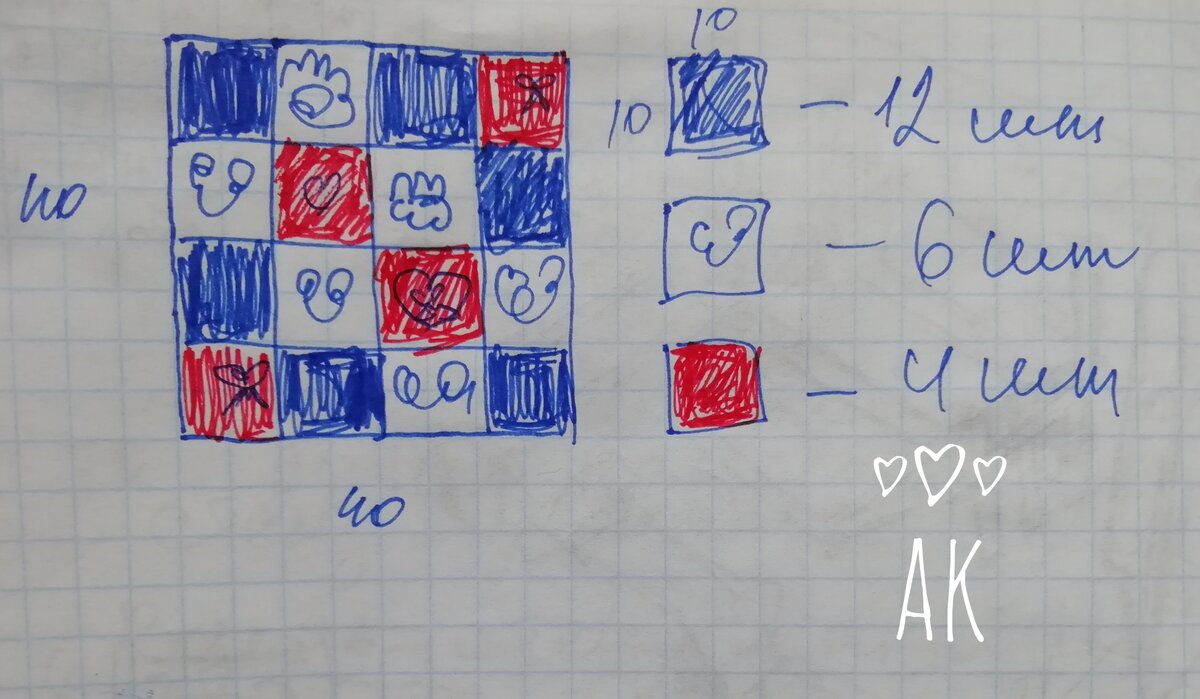 10
10 – 12 шт
40
– 6 шт
– 4 шт
40
АК